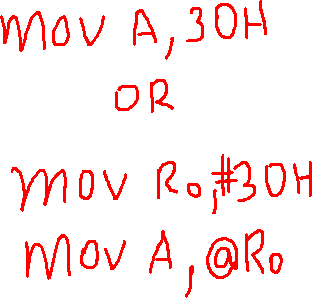 MOV A, 30H
OR
MOV R0, #30H
MOV A, @R0